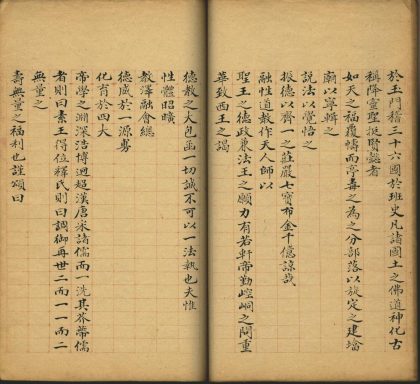 於玉門稽三十六國於班史凡諸國土之佛道神化古
稱降靈聖挺賢懿者
如天之福覆幬而亭毒之為之分部落以定之建壇
廟以寧輯之
說法以覺悟之
振德以齊一之莊嚴七寶布金千億諒哉
融性道教作天人師以
聖王之德政兼法王之願力有若軒帝勤崆峒之問重
華致西王之謁
德教之大包函一切誠不可以一法執也夫惟
性體昭曠
教澤融會總
德威於一源
化育於四大
帝學之淵深浩博超漢唐宋諸儒而一洗其芥蒂儒
者則曰素王得位釋氏則曰調御再世二而一一而二
無量之
壽無量之福利也謹頌曰